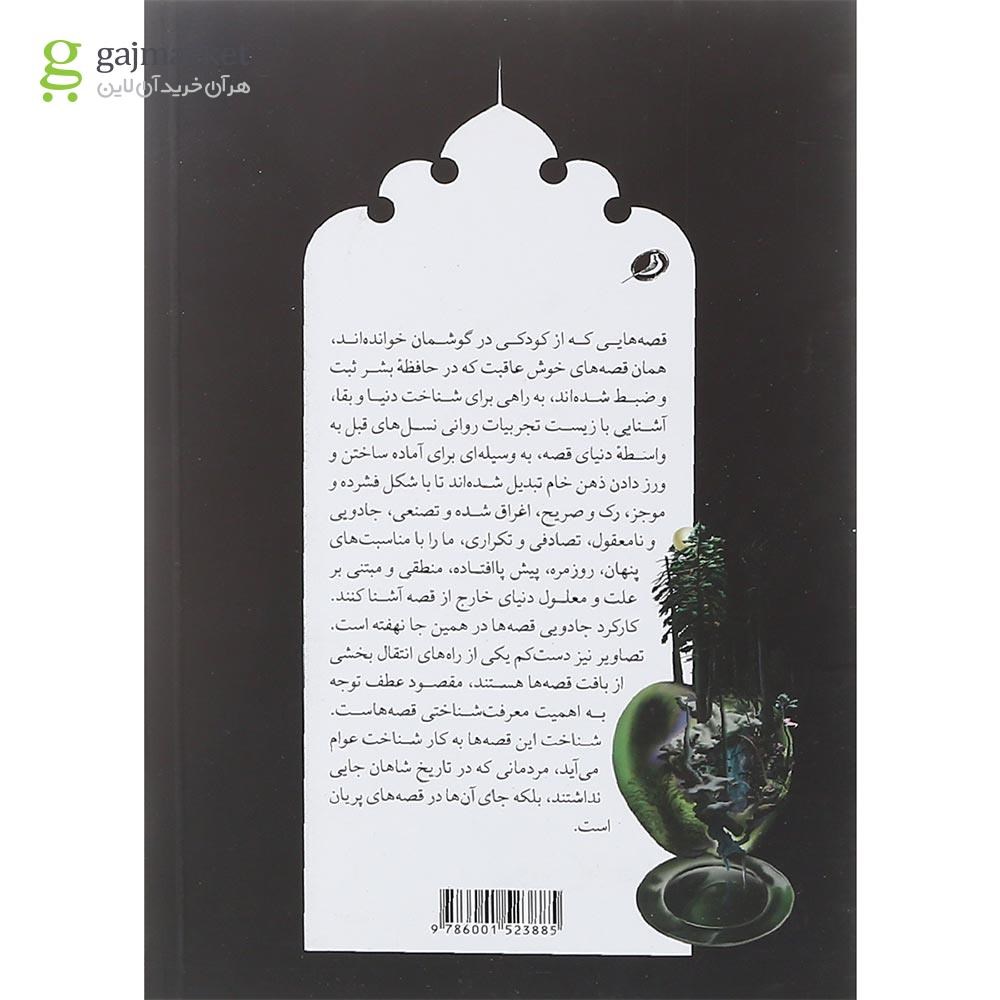 gajmarket
هر آن خرید آن لاین
قصه‌هایی که از کودکی در گوشمان خوانده‌اند،
همان قصه‌های خوش عاقبت که در حافظهٔ بشر ثبت
و ضبط شده‌اند، به راهی برای شناخت دنیا و بقا،
آشنایی با زیست تجربیات روانی نسل‌های قبل به
واسطهٔ دنیای قصه، به وسیله‌ای برای آماده ساختن و
ورز دادن ذهن خام تبدیل شده‌اند تا با شکل فشرده و
موجز، رک و صریح، اغراق شده و تصنعی، جادویی
و نامعقول، تصادفی و تکراری، ما را با مناسبت‌های
پنهان، روزمره، پیش پاافتاده، منطقی و مبتنی بر
علت و معلول دنیای خارج از قصه آشنا کنند.
کارکرد جادویی قصه‌ها در همین جا نهفته است.
تصاویر نیز دست‌کم یکی از راه‌های انتقال بخشی
از بافت قصه‌ها هستند، مقصود عطف توجه
به اهمیت معرفت‌شناختی قصه‌هاست.
شناخت این قصه‌ها به کار شناخت عوام
می‌آید، مردمانی که در تاریخ شاهان جایی
نداشتند، بلکه جای آن‌ها در قصه‌های پریان
است.
9 786001 523885